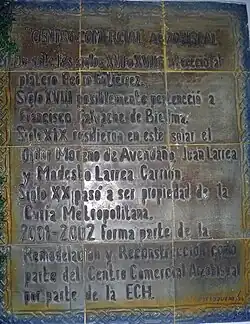 CENTRO COMERCIAL ARZOBISPAL
siglos XVI XVII perteneció al
platero Pedro Gutiérrez.
Siglo XVIII posiblemente perteneció a
Francisco de Bielma.
Siglo XIX residieron en este solar el
Oidor Moreno de Avendaño, Juan Larrea
y Modesto Larrea Carrión.
Siglo XX pasó a ser propiedad de la
Curia Metropolitana.
2001-2002 forma parte de la
Remodelación y Reconstrucción como
parte del Centro Comercial Arzobispal
por parte de la ECH.